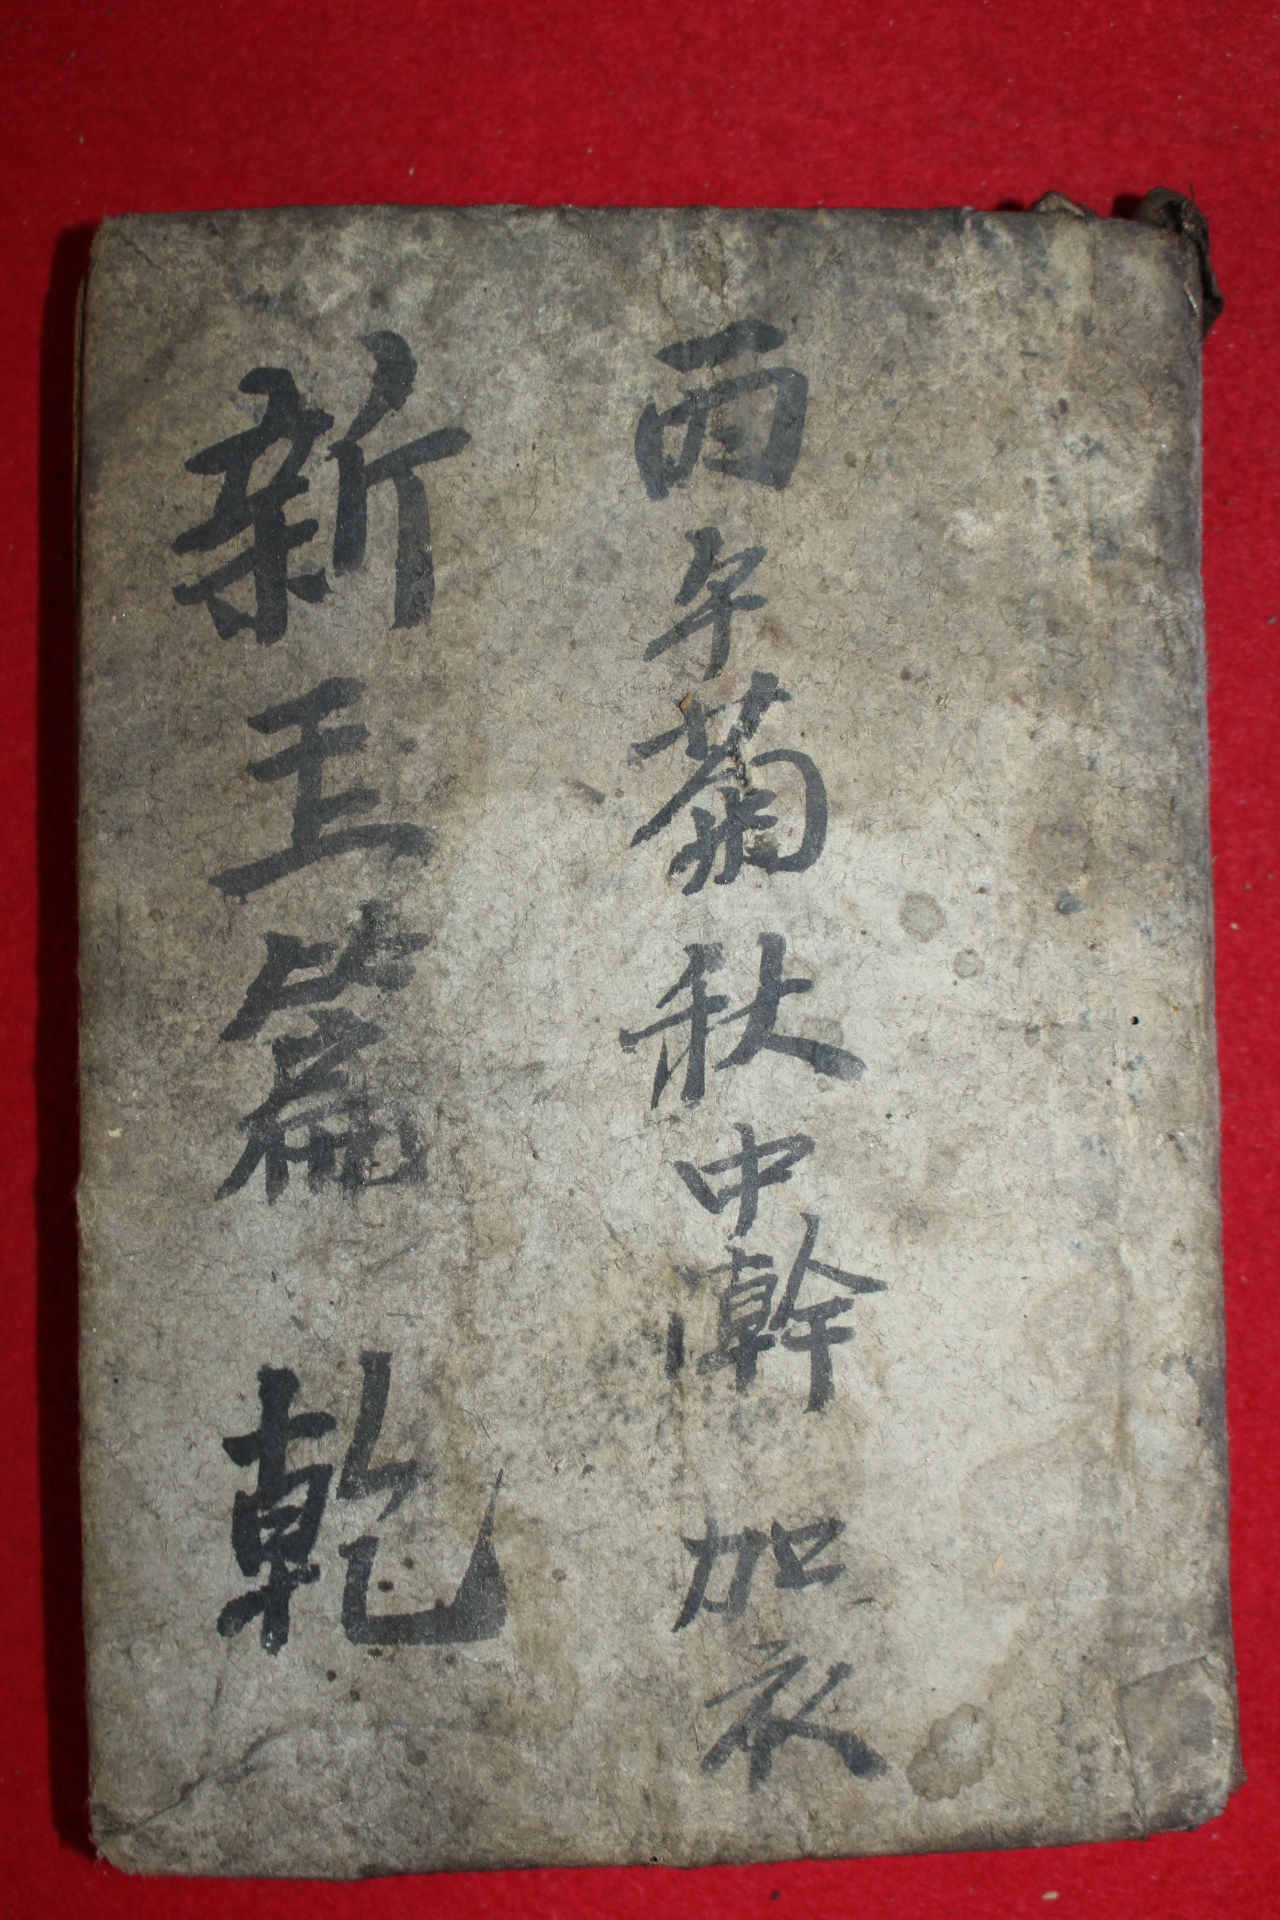 丙午菊秋中澣加衣
新玉篇 乾